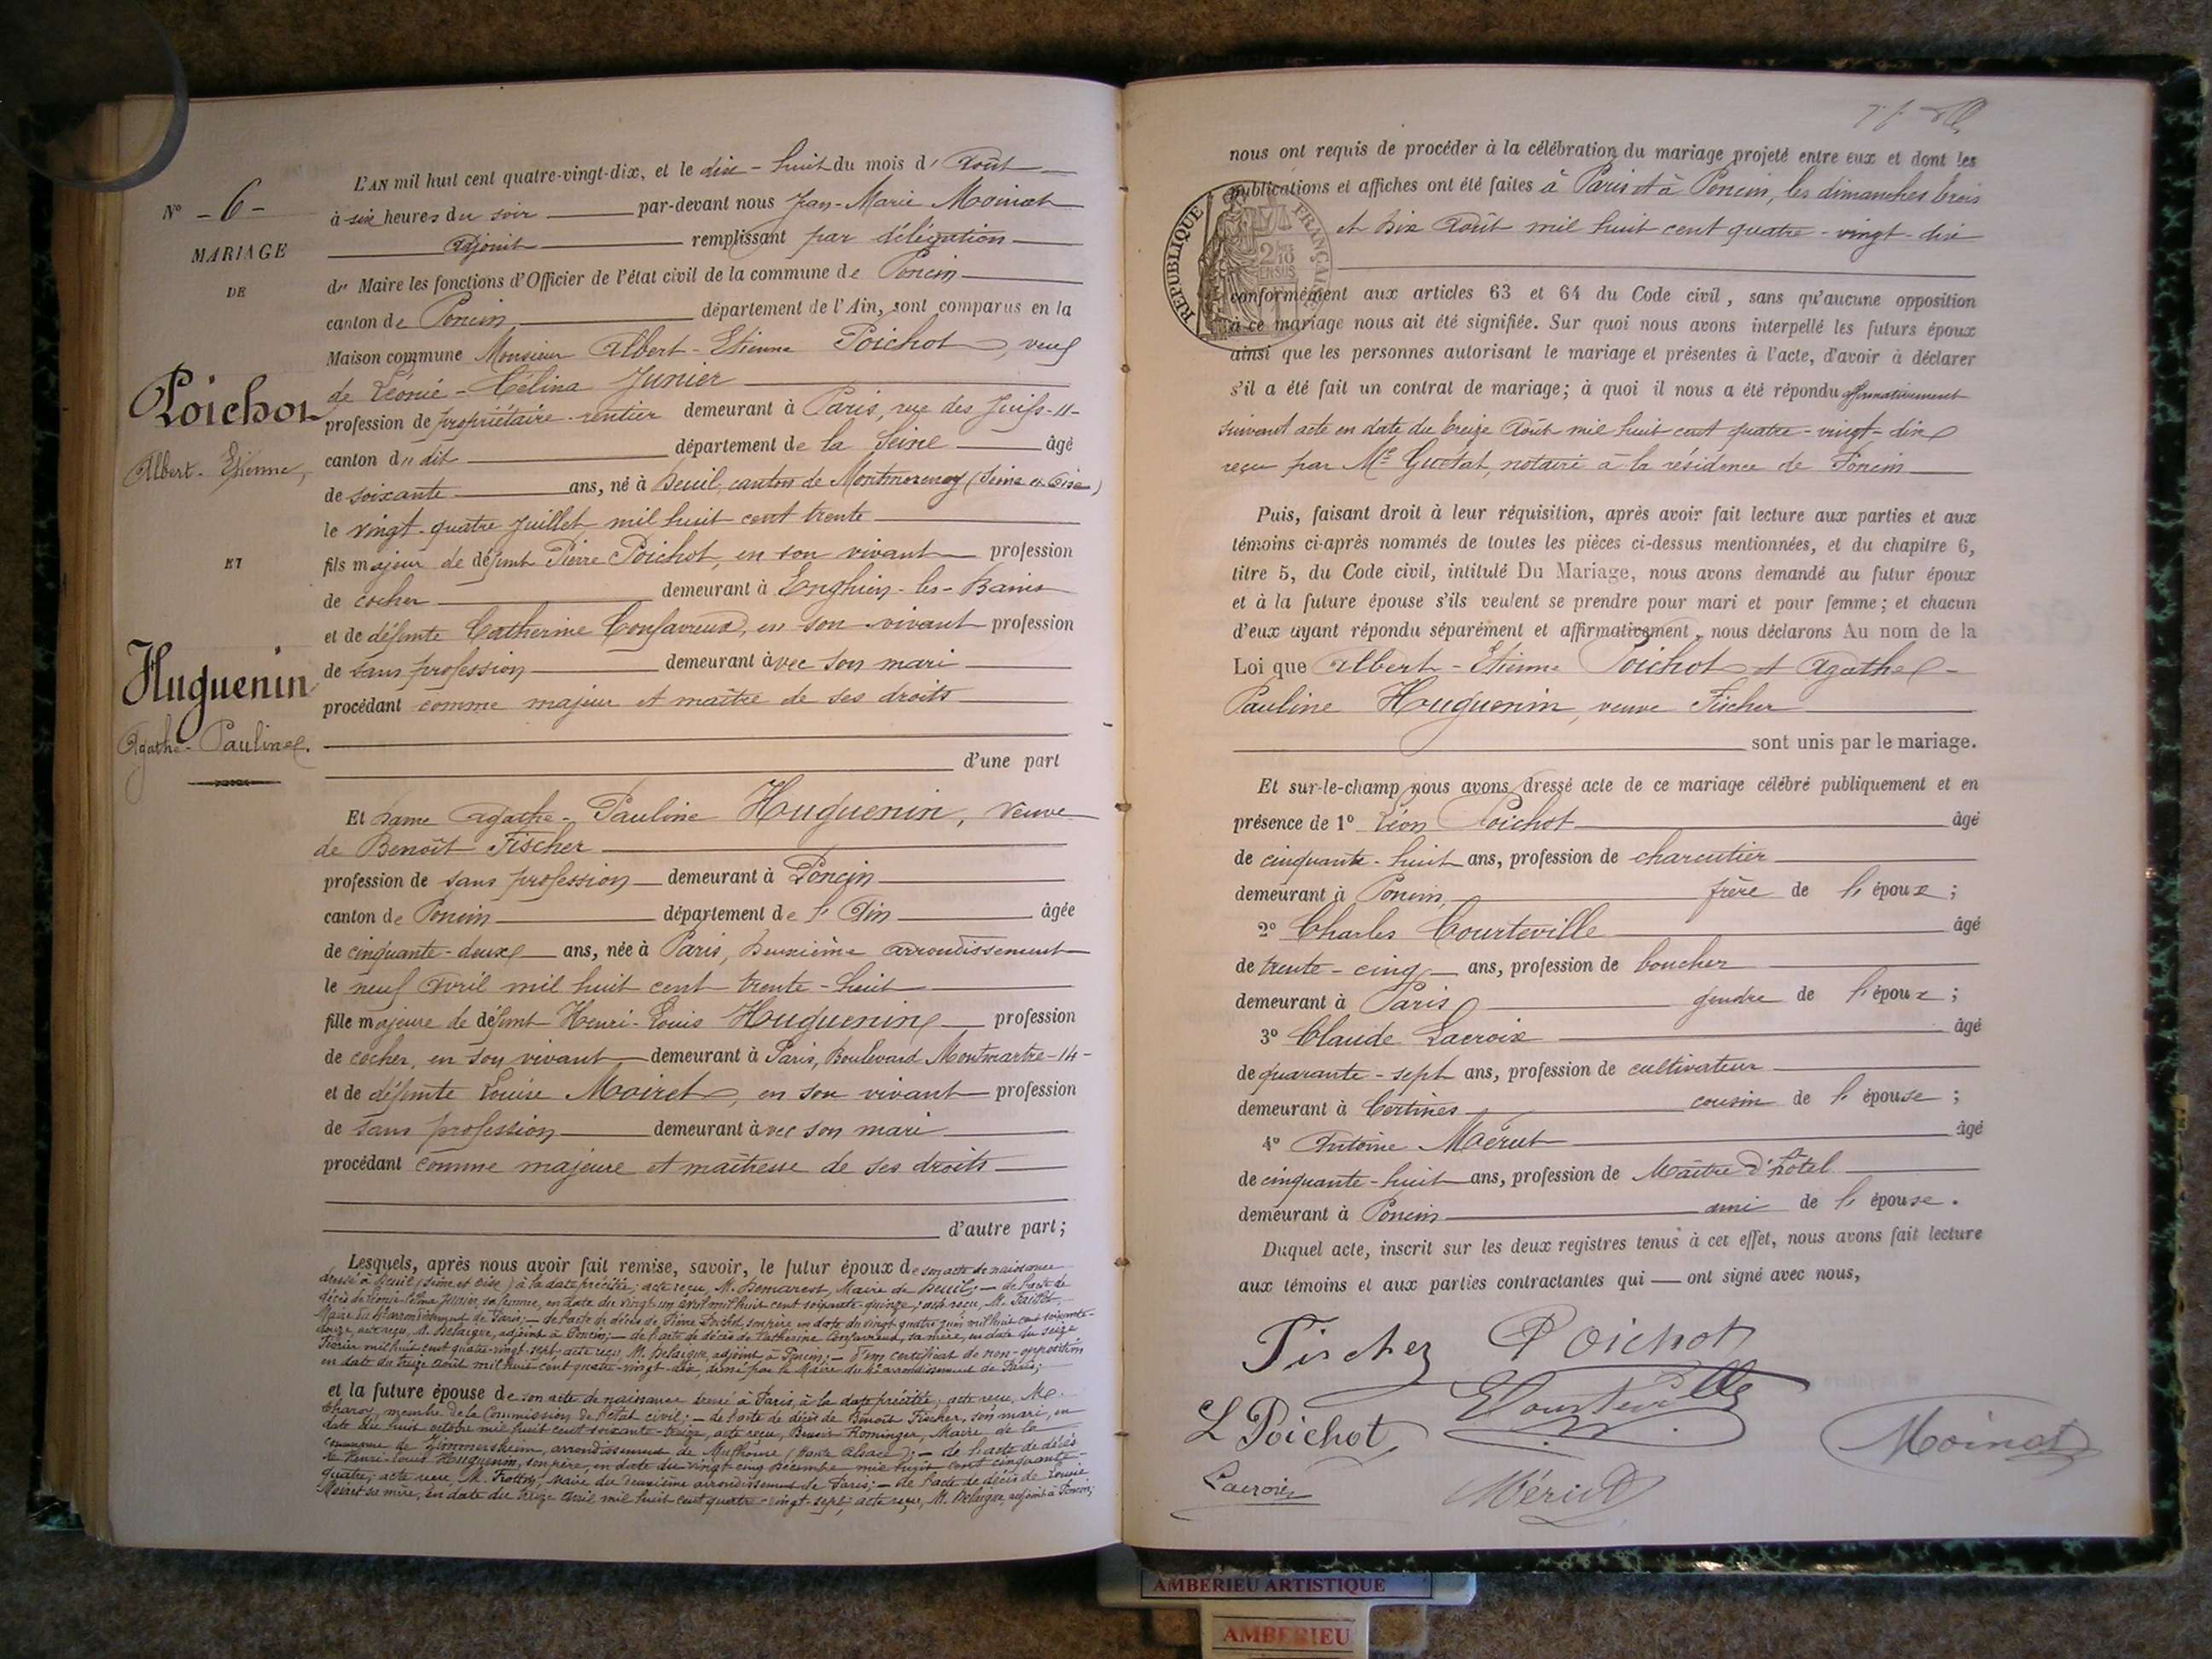 N° - 6 -
MARIAGE
DE
Poichot
Albert-Etienne,
ET
Huguenin
Agathe-Pauline.
L'AN mil huit cent quatre-vingt-dix, et le dix-huit du mois d'Août
à six heures du soir par-devant nous Jean-Marie Moinat
Adjoint remplissant par délégation
du Maire les fonctions d'Officier de l'état civil de la commune de Poncin
canton de Poncin département de l'Ain, sont comparus en la
Maison commune Monsieur Albert-Etienne Poichot, veuf
de Léonie-Célina Junier
profession de propriétaire-rentier demeurant à Paris, rue des Juifs-11-
canton du dit département de la Seine âgé
de soixante ans, né à Deuil, canton de Montmorency (Seine et Oise)
le vingt-quatre Juillet mil huit cent trente
fils majeur de défunt Pierre Poichot, en son vivant profession
de cocher demeurant à Enghien-les-Bains
et de défunte Catherine Confavreux, en son vivant profession
de sans profession demeurant avec son mari
procédant comme majeur et maître de ses droits
d'une part
Et Dame Agathe-Pauline Huguenin, Veuve
de Benoît Fischer
profession de sans profession demeurant à Poncin
canton de Poncin département de l'Ain âgée
de cinquante-deux ans, née à Paris, Deuxième arrondissement
le neuf Avril mil huit cent trente-huit
fille majeure de défunt Henri-Louis Huguenin profession
de cocher, en son vivant demeurant à Paris, Boulevard Montmartre-14-
et de défunte Louise Moiret, en son vivant profession
de sans profession demeurant avec son mari
procédant comme majeure et maîtresse de ses droits
d'autre part;
Lesquels, après nous avoir fait remise, savoir, le futur époux de son acte de naissance
dressé à Deuil (Seine et Oise) à la date précitée; acte reçu, M. Demarest, Maire de Deuil; - de l'acte de
décès de Léonie-Célina Junier, sa femme, en date du vingt-un avril mil huit cent soixante-quinze; acte reçu, M.
Maire du 4e arrondissement de Paris; - de l'acte de décès de Pierre Poichot, son père, en date du vingt quatre juin mil huit cent soixante-
douze, acte reçu, M. Delaigue, adjoint à Poncin; - de l'acte de décès de Catherine Confavreux, sa mère, en date du seize
Février mil huit cent quatre-vingt-sept, acte reçu, M. Delaigue, adjoint à Poncin; - d'un certificat de non-opposition
en date du treize Août mil huit cent quatre-vingt-dix, délivré par le Maire du 4e arrondissement de Paris;
et la future épouse de son acte de naissance dressé à Paris, à la date précitée, acte reçu, M.
Charoy, membre de la Commission de l'état civil; - de l'acte de décès de Benoît Fischer, son mari, en
date du huit octobre mil huit cent soixante-treize, acte reçu, Benoit Hominger, Maire de la
commune de Zimmersheim, arrondissement de Mulhouse (Haute Alsace); - de l'acte de décès
de Henri-Louis Huguenin, son père, en date du vingt-cinq Décembre mil huit cent cinquante-
quatre; acte reçu, M. Maire du deuxième arrondissement de Paris; - de l'acte de décès de Louise
Moiret sa mère, en date du treize avril mil huit cent quatre-vingt-sept; acte reçu, M. Delaigue, adjoint à Poncin;
nous ont requis de procéder à la célébration du mariage projeté entre eux et dont les
publications et affiches ont été faites à Paris et à Poncin, les dimanches trois
et dix Août mil huit cent quatre-vingt-dix
RÉPUBLIQUE FRANÇAISE
2/10 EN SUS
conformément aux articles 63 et 64 du Code civil, sans qu'aucune opposition
à ce mariage nous ait été signifiée. Sur quoi nous avons interpellé les futurs époux
ainsi que les personnes autorisant le mariage et présentes à l'acte, d'avoir à déclarer
s'il a été fait un contrat de mariage; à quoi il nous a été répondu affirmativement
suivant acte en date du treize Août mil huit cent quatre-vingt-dix
reçu par Me notaire à la résidence de Poncin
Puis, faisant droit à leur réquisition, après avoir fait lecture aux parties et aux
témoins ci-après nommés de toutes les pièces ci-dessus mentionnées, et du chapitre 6,
titre 5, du Code civil, intitulé Du Mariage, nous avons demandé au futur époux
et à la future épouse s'ils veulent se prendre pour mari et pour femme; et chacun
d'eux ayant répondu séparément et affirmativement, nous déclarons Au nom de la
Loi que Albert-Etienne Poichot et Agathe-
Pauline Huguenin, veuve Fischer
sont unis par le mariage.
Et sur-le-champ nous avons dressé acte de ce mariage célébré publiquement et en
présence de 1° Léon Poichot âgé
de cinquante-huit ans, profession de charcutier
demeurant à Poncin, frère de l'époux;
2° Charles Courteville âgé
de trente-cinq ans, profession de boucher
demeurant à Paris gendre de l'époux;
3° Claude Lacroix âgé
de quarante-sept ans, profession de cultivateur
demeurant à Certines cousin de l'épouse;
4° Antoine Maérut âgé
de cinquante-huit ans, profession de Maître d'hôtel
demeurant à Poncin ami de l'épouse.
Duquel acte, inscrit sur les deux registres tenus à cet effet, nous avons fait lecture
aux témoins et aux parties contractantes qui ont signé avec nous,
Fischer Poichot
L Poichot Courteville Moinat
Lacroix
AMBERIEU ARTISTIQUE
AMBERIEU